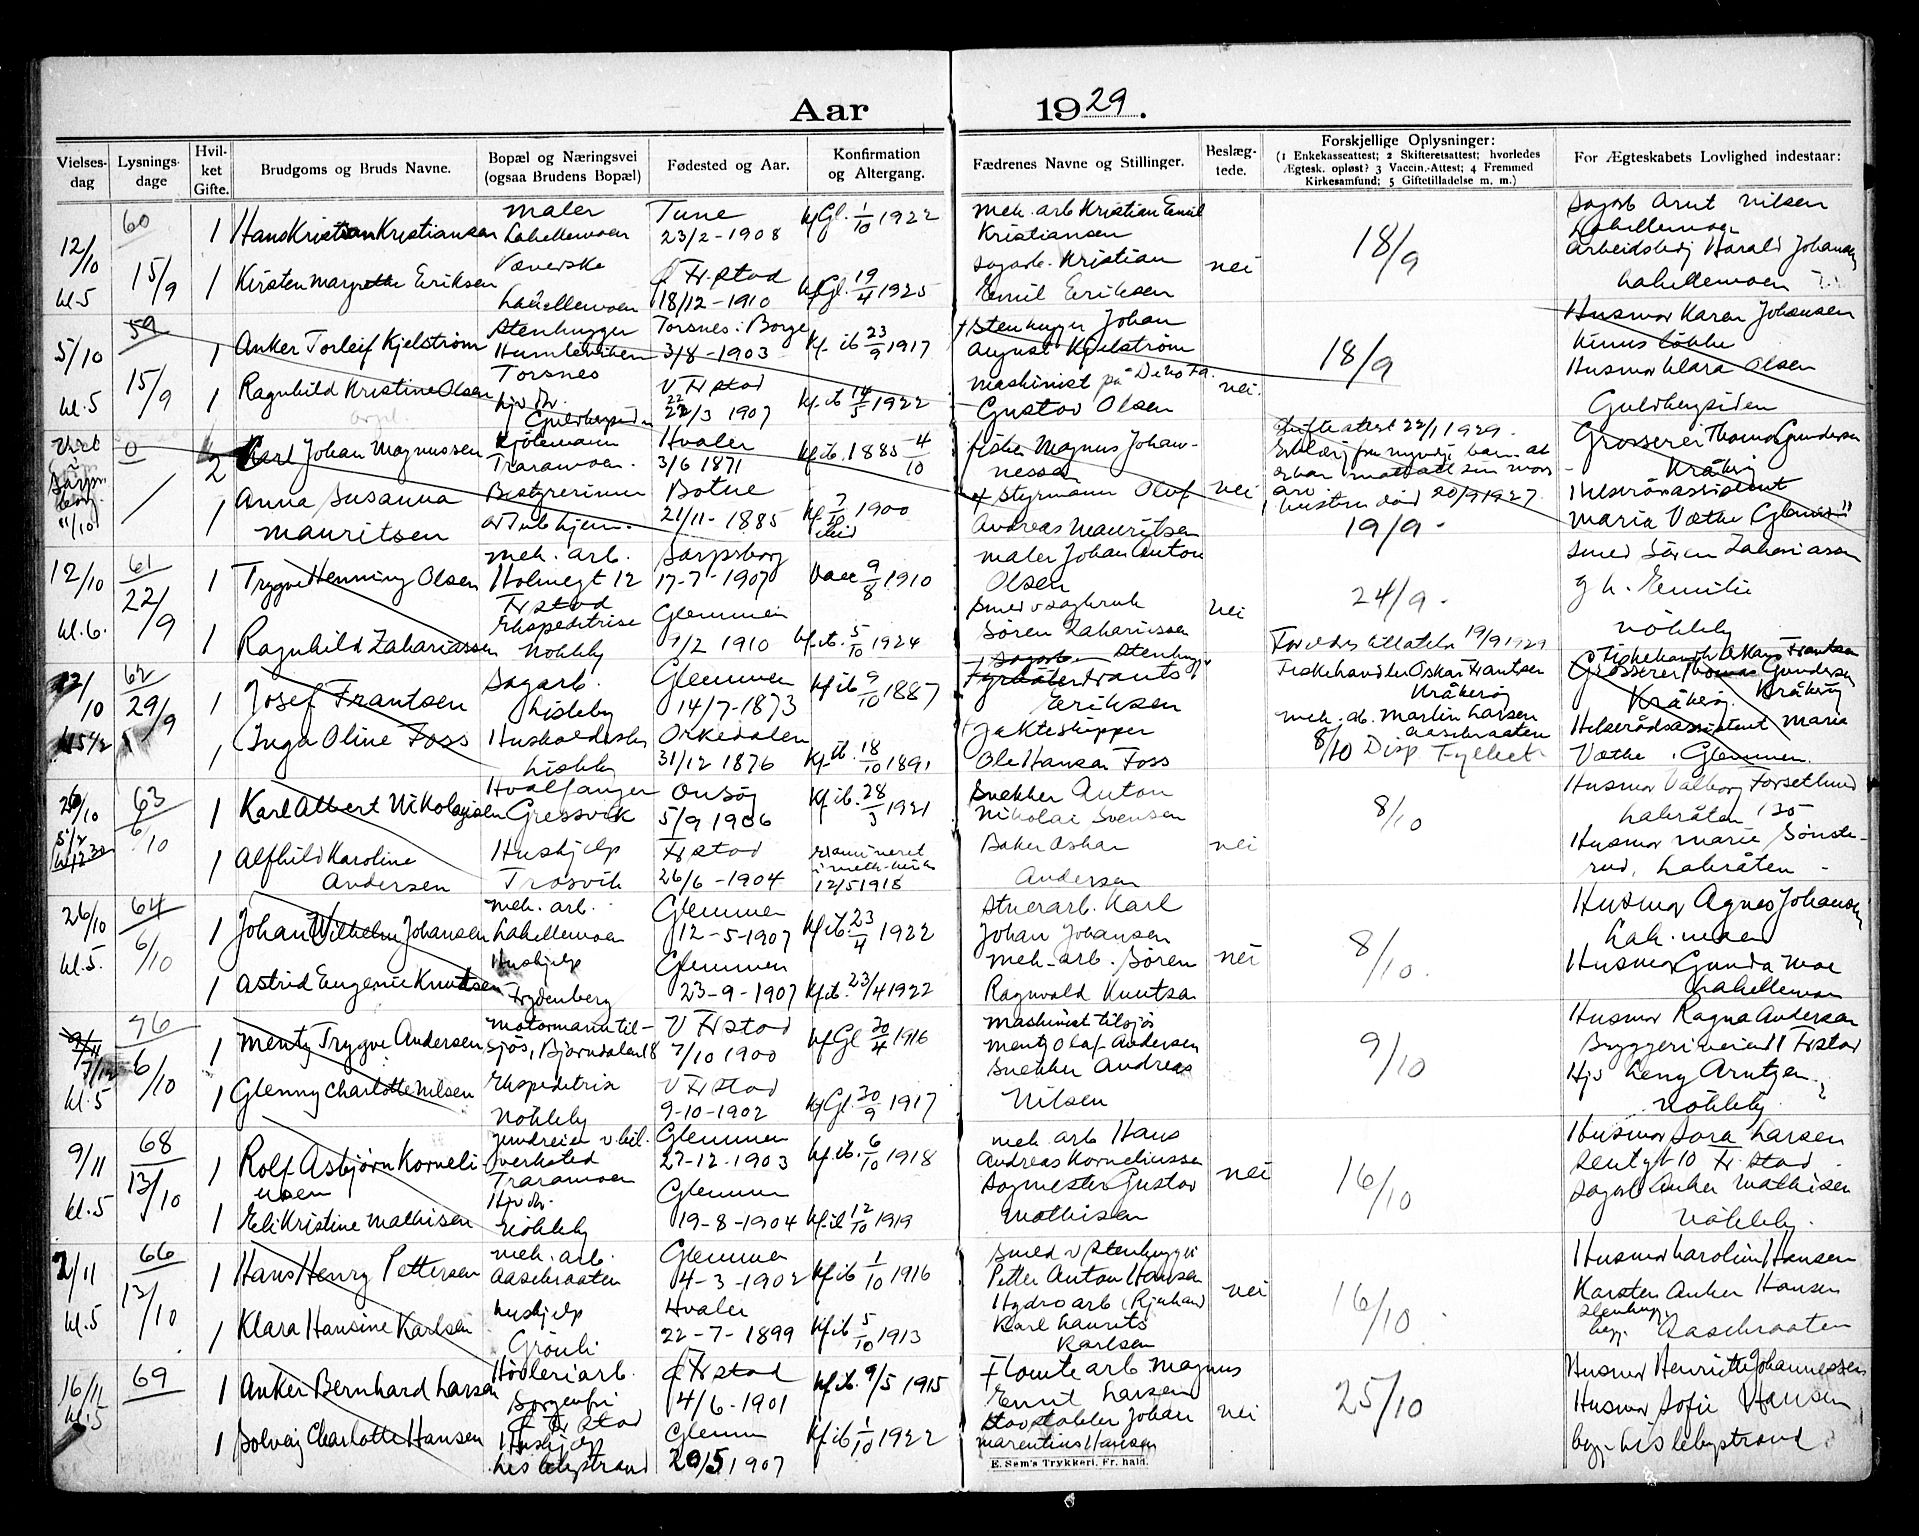 Aar 1929.
Vielses-dag
Lysnings-dage
Hvil-ket Gifte.
Brudgoms og Bruds Navne.
Bopæl og Næringsvei (ogsaa Brudens Bopæl)
Fødested og Aar.
Konfirmation og Altergang.
Fædrenes Navne og Stillinger.
Beslæg-tede.
Forskjellige Oplysninger:
(1 Enkekasseattest; 2 Skifteretsattest; hvorledes Ægtesk. opløst? 3 Vaccin.-Attest; 4 Fremmed Kirkesamfund; 5 Giftetilladelse m. m.)
For Ægteskabets Lovlighed indestaar:
60 maler Tune Kf Gl. 1/10 1922 mek. arb Kristian Emil Sagarb Arnt Nilsen
12/10 1 Hans Kristian Kristiansen Lahellemoen 23/2-1908 Kristiansen 18/9 Lahellemoen
15/9 1 Kirsten Margrethe Eriksen Væverske Fr.stad Kf Gl. 19/4 1925 Sagarb. Kristian nei Arbeidsbg Harald Johansen
kl.5 Lahellemoen 18/12-1910 Emil Eriksen Lahellemoen
59 Stenhugger Torsnes i Borge Kf. ib 23/9 1917 † Stenhugger Johan Husmor Karen Johansen
5/10 1 Anker Torleif Kjelström 3/8-1903 August Kjelström 18/9
15/9 1 Ragnhild Kristine Olsen Torsnes V Fr stad Kf. ib 14/5 1922 Maskinist på nei Husmor Klara Olsen
kl.5 Guldbergsiden 22/3 1907 Gustav Olsen Guldbergsiden
0 2 Karl Johan Magnussen Hvaler Kf. ib. 1885 4/10 Fisker Magnus Johan- 22/1 1929. Grosserer Thomas Gundersen
Traramoen. 3/6 1871 nessen Kråkerøy
1 Anna Susanna Bestyrerinne Botne Kf 7/10 1900 † Styrmann Olof nei hustru død 20/9 1927. Helserådsassistent
11/10 Mauritsen 21/11-1885 Andreas Mauritsen 19/9. Maria Væthe Glemmen
61 mek. arb. Sarpsborg maler Johan Anton Smed Sören Zahariassen
12/10 1 Trygve Henning Olsen Holmegt 12 17-7-1907 Vacc 9/8 1910 Olsen 24/9. g h. Emilie
22/9 Fr stad
kl.6. 1 Ragnhild Zahariassen Ekspeditrise Glemmen Kf. ib. 5/10 1924 Smed v sagbruk nei Nökleby
Nökleby 7/2 1910 Sören Zahariassen 19/9 1929
62 Sagarb. Glemmen Kf ib 9/10 1887 Stenhugger Fiskehandler Oskar Frantsen Fiskehandl Oskar Frantsen
12/10 1 Josef Frantsen Lisleby 14/7-1873 Fyrbøter Frants Kråkerøy Grosserer Thomas Gundersen
29/9 Eriksen Kråkerøy
kl 5 1/2 1 Inga Oline Foss Orkedalen Kf. ib. 18/10 1891 † Jakteskipper mek. ab. Martin Larsen Helserådsassistent Maria
Lisleby 31/12 1876 Ole Hansen Foss 8/10 Disp Fylket Væthe, Glemmen
63 Hvalfanger Onsöy Kf ib. 28/3 1921 Snekker Anton Husmor Valborg Forsetlund
26/10 1 Karl Albert Nikolaysen Gressvik 5/9 1906 Nikolai Svensen 8/10 Labråten 135
6/10 1 Alfhild Karoline Hushjelp Fr stad Baker Oskar nei Husmor Marie Sønste-
Andersen Trosvik 26/6-1904 12/5 1918 Andersen rud, Labråten
64 mek. arb. Glemmen Kf ib. 23/4 1922 Stuerarb. Karl Husmor Agnes Johansen
26/10 1 Johan Wilhelm Johansen Lahellemoen 12-5-1907 Johan Johansen 8/10. Lah. moen
6/10
kl.5. 1 Astrid Eugenie Knutsen Hushjelp Glemmen Kf ib. 23/4 1922 mek. arb. Sören nei Husmor Gunda Moe
Frydenberg 23-9-1907 Ragnvald Knutsen Lahellemoen
76 Motormann til- V Fr stad Kf Gl 30/4 1916 Maskinist tilsjös Husmor Ragna Andersen
7/12 1 Mentz Trygve Andersen sjös, Bjørndalen 18 7/10 1900 Mentz Olaf Andersen 9/10 Bryggeriveien 11 Fr stad
6/10
kl.5 1 Glenny Charlotte Nilsen Ekspeditrise V Fr stad Kf Gl. 30/9 1917 Snekker Andreas Hjs Leny Arntzen
Nökleby 9-10-1902 Nilsen Nökleby
68 Glemmen Kf. ib. 6/10 1918 mek arb Hans Husmor Sora Larsen
9/11 1 Rolf Asbjørn Korneli- verksted 27-12-1903 Andreas Korneliussen 10 Fr. stad
13/10 ussen Traramoen
kl.5 1 Eli Kristine Mathisen Glemmen Kf. ib 12/10 1919 Sagmester Gustav nei 16/10 Sagarb Anker Mathisen
Nökleby 19-8-1904 Mathisen Nökleby.
66 mek. arb. Glemmen Kf ib 1/10 1916 Smed v Stenhuggeri Husmor Karoline Hansen
2/11 1 Hans Henry Pettersen Aaserraaten 4-3-1902 Petter Anton Hansen
13/10
kl.5 1 Klara Hansine Karlsen Hushjelp Hvaler Kf ib. 5/10 1913 Hydroarb. (Rjukan) nei 16/10. Karsten Anker Hansen
Grönli 22-7-1899 Karl Laurits Karlsen
69 Høvleriarb. Fr stad Kf. ib. 9/5 1915 Tomtearb Magnus Husmor Henriette Johannessen
16/11 1 Anker Bernhard Larsen Sorgenfri 4/6-1901 Emil Larsen 25/10 Husmor Sofie Hansen
kl.5 Fr stad
1 Solveig Charlotte Hansen Hushjelp Glemm Kf ib 1/10 1922 Stavstabler Johan nei
Lislebystrand 20/5 1907 Marentius Hansen bgg. Lislebystrand
E. Sem's Trykkeri. Fr. hald.